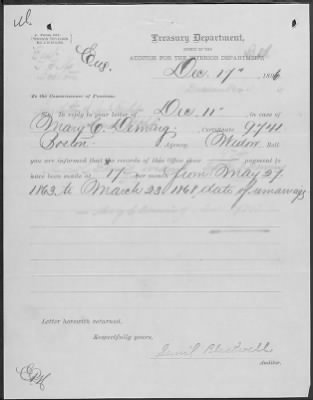 Eug.
Treasury Department,
OFFICE OF THE
AUDITOR FOR THE INTERIOR DEPARTMENT,
Dec. 17th, 1896
To the Commissioner of Pensions:
In reply to your letter of Dec. 11th, in case of
Mary C. Deming, Certificate 9741
Boston Agency, Widow Roll
you are informed the records of this Office show payment to
have been made at 17 per month from May 27,
1863, to March 23, 1868, date of remarriage
Letter herewith returned.
Respectfully yours,
Saml Blackwell
Auditor.